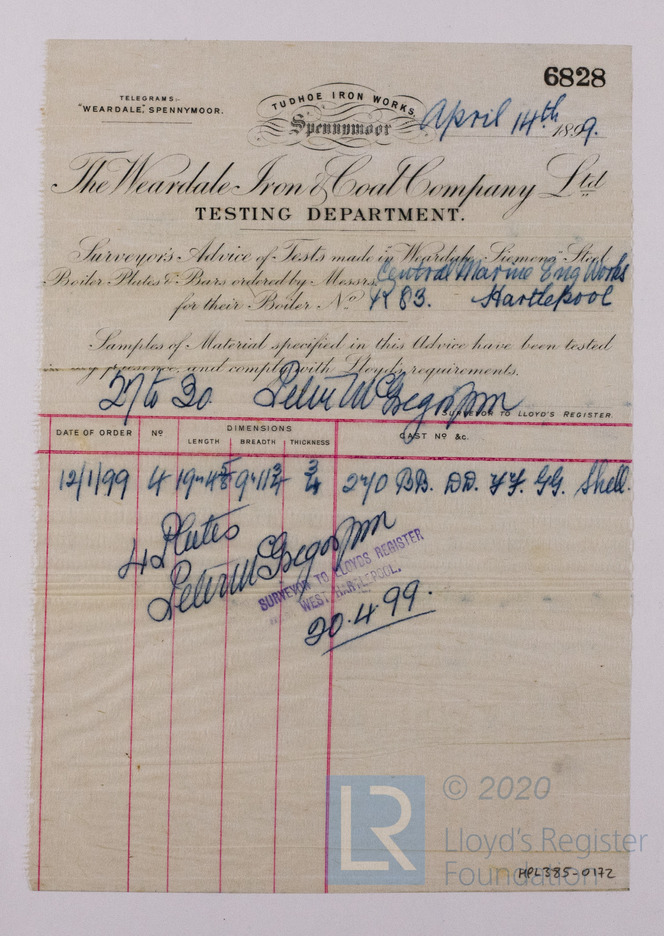 6828
TELEGRAMS:-
"WEARDALE," SPENNYMOOR.
TUDHOE IRON WORKS.
Spennymoor
April 14th 1899.
The Weardale Iron & Coal Company Ltd
TESTING DEPARTMENT.
Surveyor's Advice of Tests made in Weardale Siemens Steel
Boiler Plates & Bars ordered by Messrs. Central Marine Eng Works
for their Boiler No R 83. Hartlepool
Samples of Material specified in this Advice have been tested
in my presence, and comply with Lloyds requirements.
27 to 30 Peter McGregor
SURVEYOR TO LLOYD'S REGISTER.
DATE OF ORDER No DIMENSIONS CAST No &c.
LENGTH BREADTH THICKNESS
12/1/99 4 19-4 5/8 9-11 3/4 3/4 270 BB. DD. FF. GG. Shell.
4 Plates
Peter McGregor
SURVEYOR TO LLOYDS REGISTER
WEST HARTLEPOOL.
20.4.99.
LR
© 2020
Lloyd's Register
Foundation
HPL385-0172